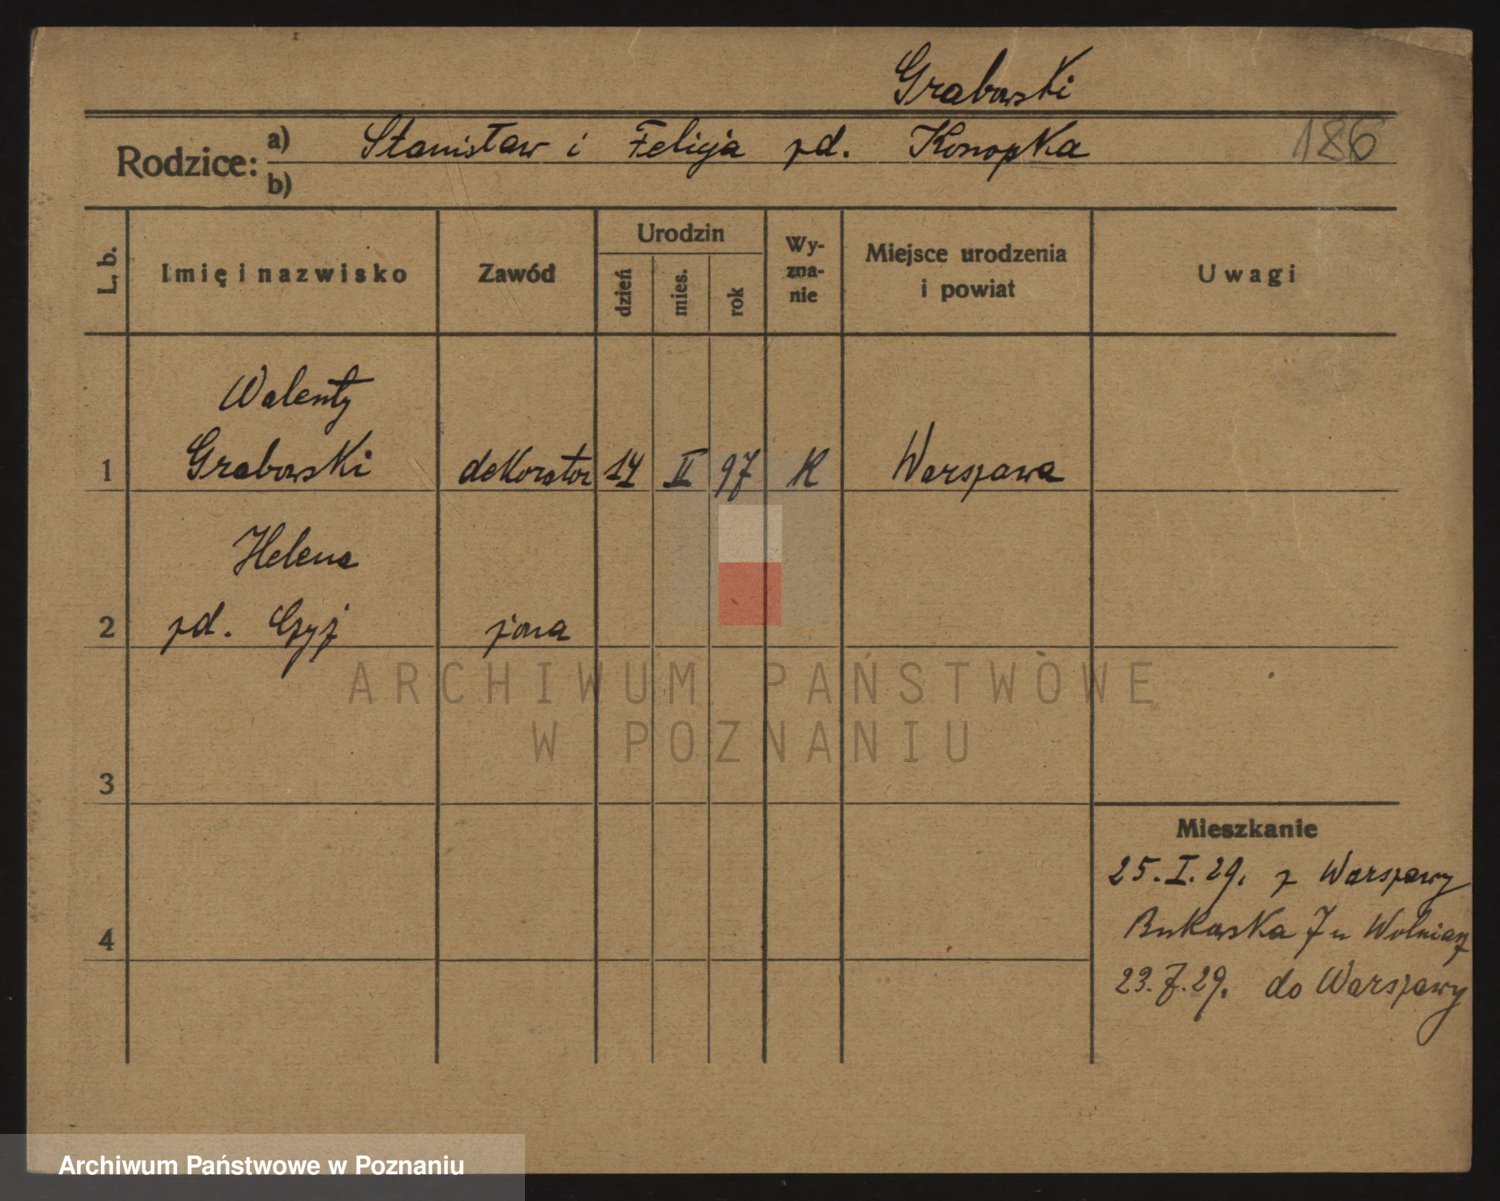 Grabowski
Rodzice: a) Stanisław i Felicja zd. Konopka 186
b)
L. b. Imię i nazwisko Zawód Urodzin dzień mies. rok Wy-zna-nie Miejsce urodzenia i powiat Uwagi
Walenty
1 Grabowski dekorator 14 II 97 K Warszawa
Helena
2 zd. żona
ARCHIWUM PAŃSTWOWE
W POZNANIU
3
Mieszkanie
25. I. 29. z Warszawy
4 Bukowska 7 u
23. 7. 29. do Warszawy
Archiwum Państwowe w Poznaniu